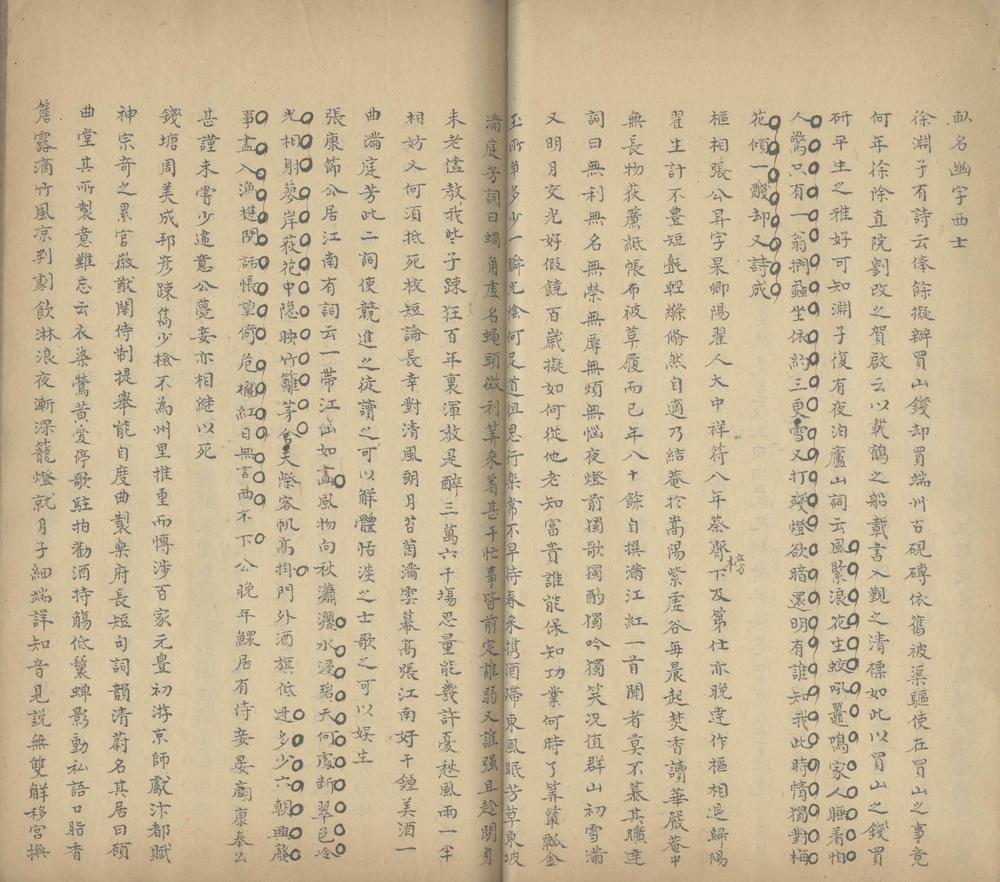 名幽字西士
徐淵子有詩云俸餘擬辦買山錢却買端州古硯磚依舊被渠驅使在買山之事竟
何年徐除直院劉改之賀啟云以載鶴之船載書入覲之清標如此以買山之錢買
研平生之雅好可知淵子復有夜泊廬山詞云風緊浪花生蛟吼鼉鳴家人睡着怕
人驚只有一翁捫蝨坐依約三更雪又打殘燈欲暗還明有誰知我此時情獨對梅
花傾一醆却又詩成
樞相張公昇字杲卿陽翟人大中祥符八年蔡齊榜下及第仕亦晚達作樞相退歸陽
翟生計不豊短氈輕絛翛然自適乃結菴於嵩陽紫虛谷每晨起焚香讀華嚴菴中
無長物荻簾紙帳布被草履而已年八十餘自撰滿江紅一首聞者莫不慕其曠達
詞曰無利無名無榮無辱無煩無惱夜燈前獨歌獨酌獨吟獨笑况值群山初雪滿
又明月交光好假饒百歲擬如何從他老知富貴誰能保知功業何時了算簞瓢金
玉所爭多少一瞬光陰何足道但思行樂常不早待春来携酒殢東風眠芳草東坡
滿庭芳詞曰蝸角虛名蠅頭微利算来着甚干忙事皆前定誰弱又誰强且趁閑身
未老儘教我些子踈狂百年裏渾教是醉三萬六千場思量能幾許憂愁風雨一半
相妨又何須抵死校短論長幸對清風朗月苔茵滿雲幕高張江南好千鍾美酒一
曲滿庭芳此二詞使競進之徒讀之可以解體恬淡之士歌之可以娛生
張康節公居江南有詞云一帶江山如畫風物向秋瀟灑水浸碧天何處斷翠色冷
光相射蓼岸荻花中隱映竹籬茅舍天際客帆高掛門外酒旗低迓多少六朝興廢
事盡入漁樵閑話悵望倚危欄紅日無言西下公晚年鰥居有侍妾晏康奉公
甚謹未嘗少違意公薨妾亦相繼以死
錢塘周美成邦彦踈雋少檢不為州里推重而博涉百家元豊初游京師獻汴都賦
神宗奇之累官徽猷閣待制提舉能自度曲製樂府長短句詞韻清蔚名其居曰顧
曲堂其所製意難忘云衣染鶯黃愛停歌駐拍勸酒持觴低鬟蟬影動私語口脂香
簷露滴竹風凉判劇飲淋浪夜漸深籠燈就月子細端詳知音見說無雙解移宮換